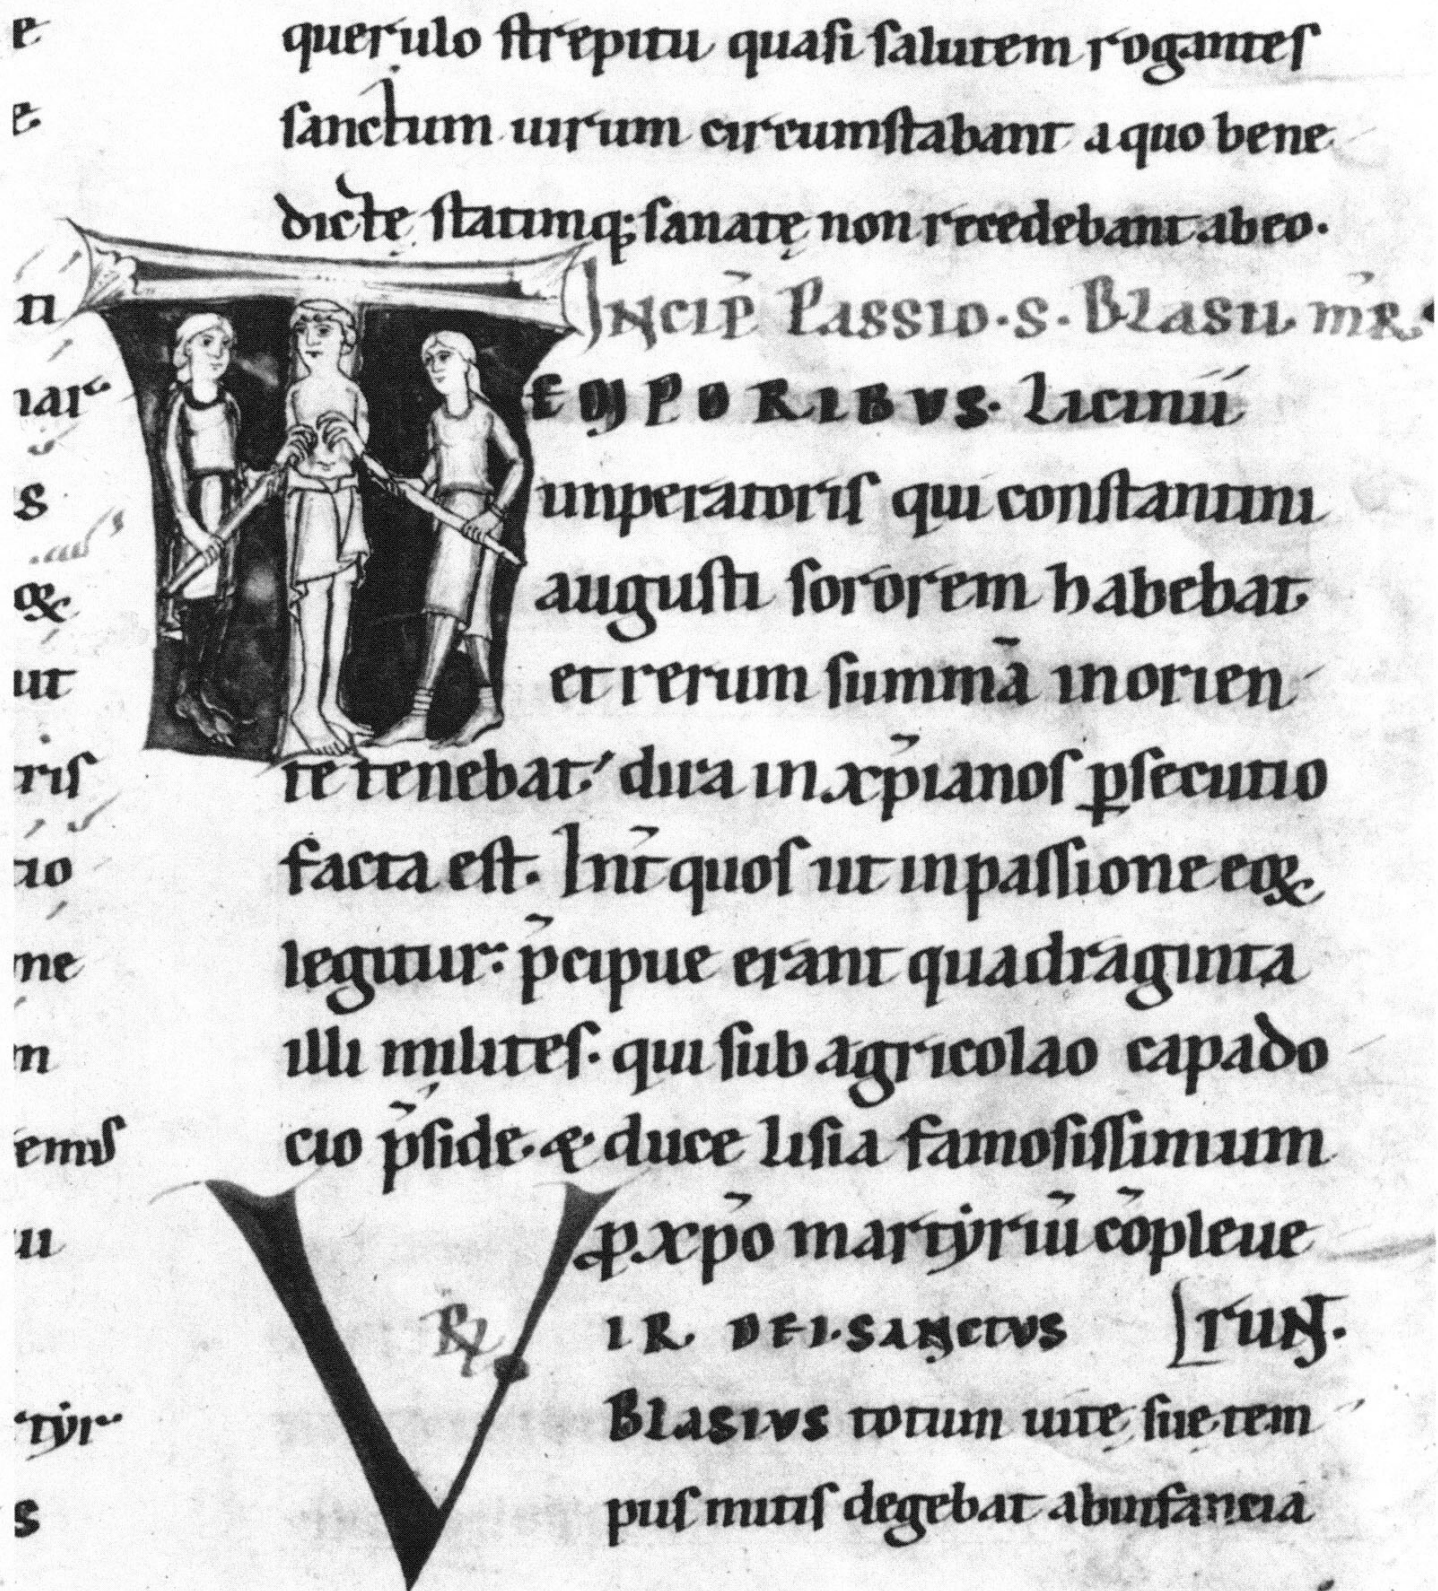 querulo strepitu quasi salutem rogantes
sanctum uirum circumstabant a quo bene
dictę statimq; sanatę non recedebant ab eo.
Incip̄ Passio. s. Blasii. m̄R.
TEMPORIBUS. Licinii
imperatoris qui constantini
augusti sororem habebat
et rerum summā in orien
te tenebat. dira in xp̄ianos ꝑsecutio
facta est. Int̄ quos ut in passione eoꝝ
legitur. p̄cipue erant quadraginta
illi milites. qui sub agricolao capado
cio p̄side. & duce lisia famosissimum
ꝓ xp̄o martẏriū cōpleue
VIR DEI. SANCTUS [runt.
BLASIUS totum uitę suę tem
pus mitis degebat ab infancia
e
e
ti
s
oꝝ
ut
ris
tio
ne
m
emis
u
tẏr
s